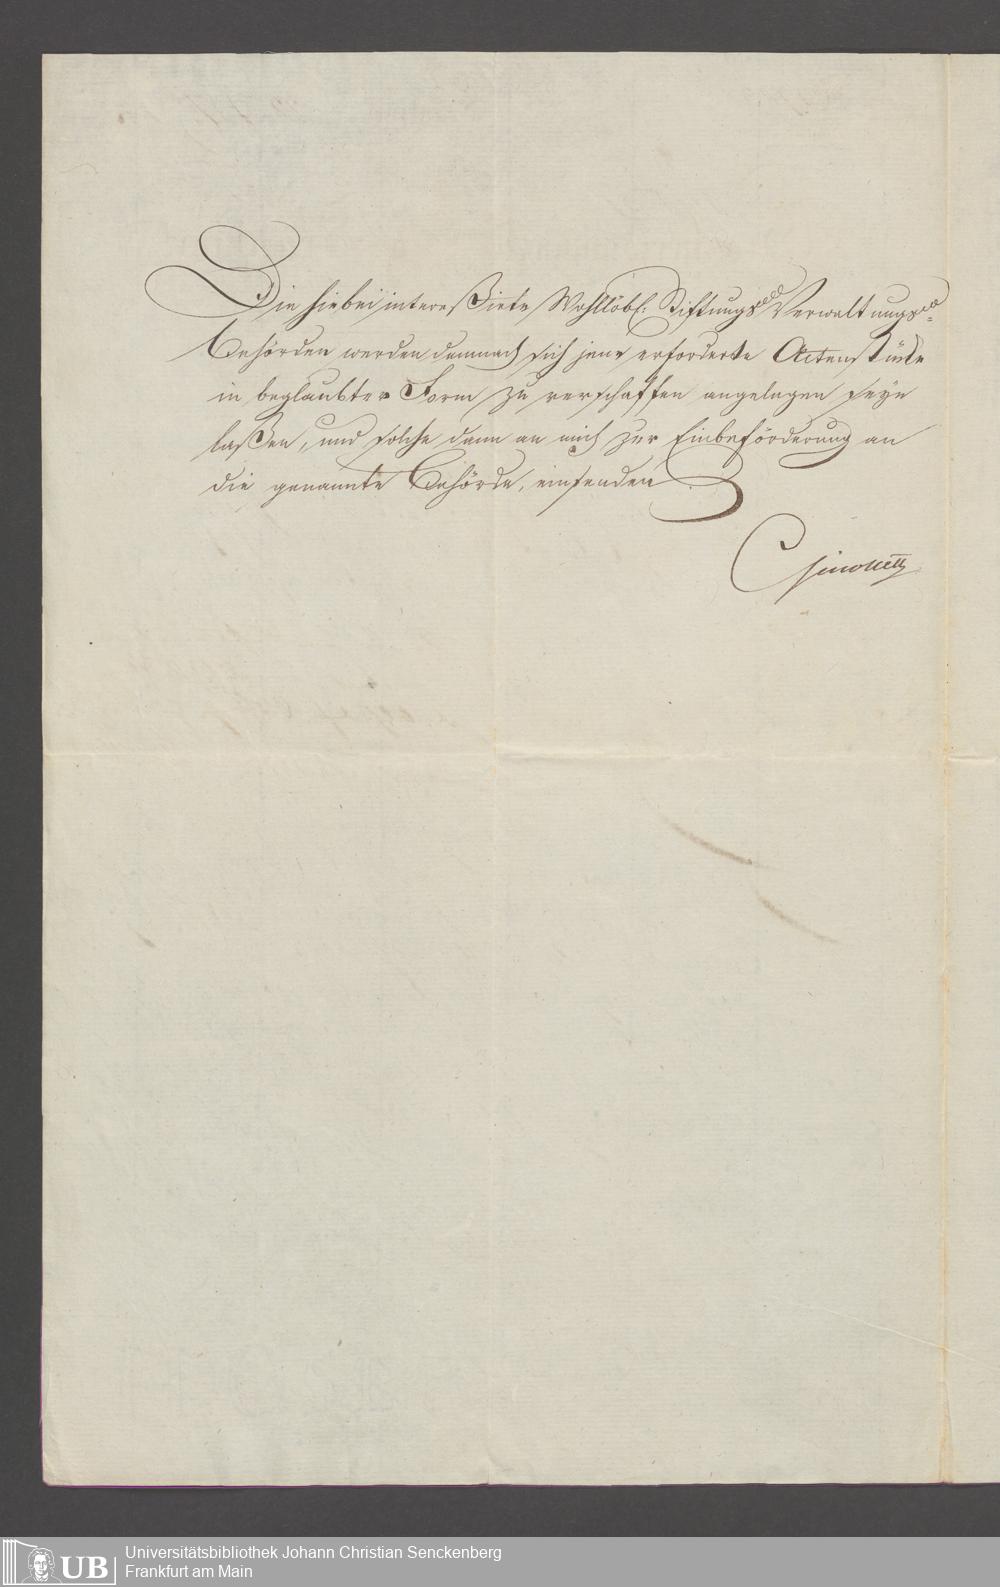 Die hiebei intereßirte Wohllöbl. Stiftungs Verwaltungs-
Behörden werden demnach sich jene erforderte Actenstücke
in beglaubter Form zu verschaffen angelegen seyn
laßen, und solche dann an mich zur Einbeförderung an
die genannte Behörde, einsenden
Universitätsbibliothek Johann Christian Senckenberg
UB Frankfurt am Main